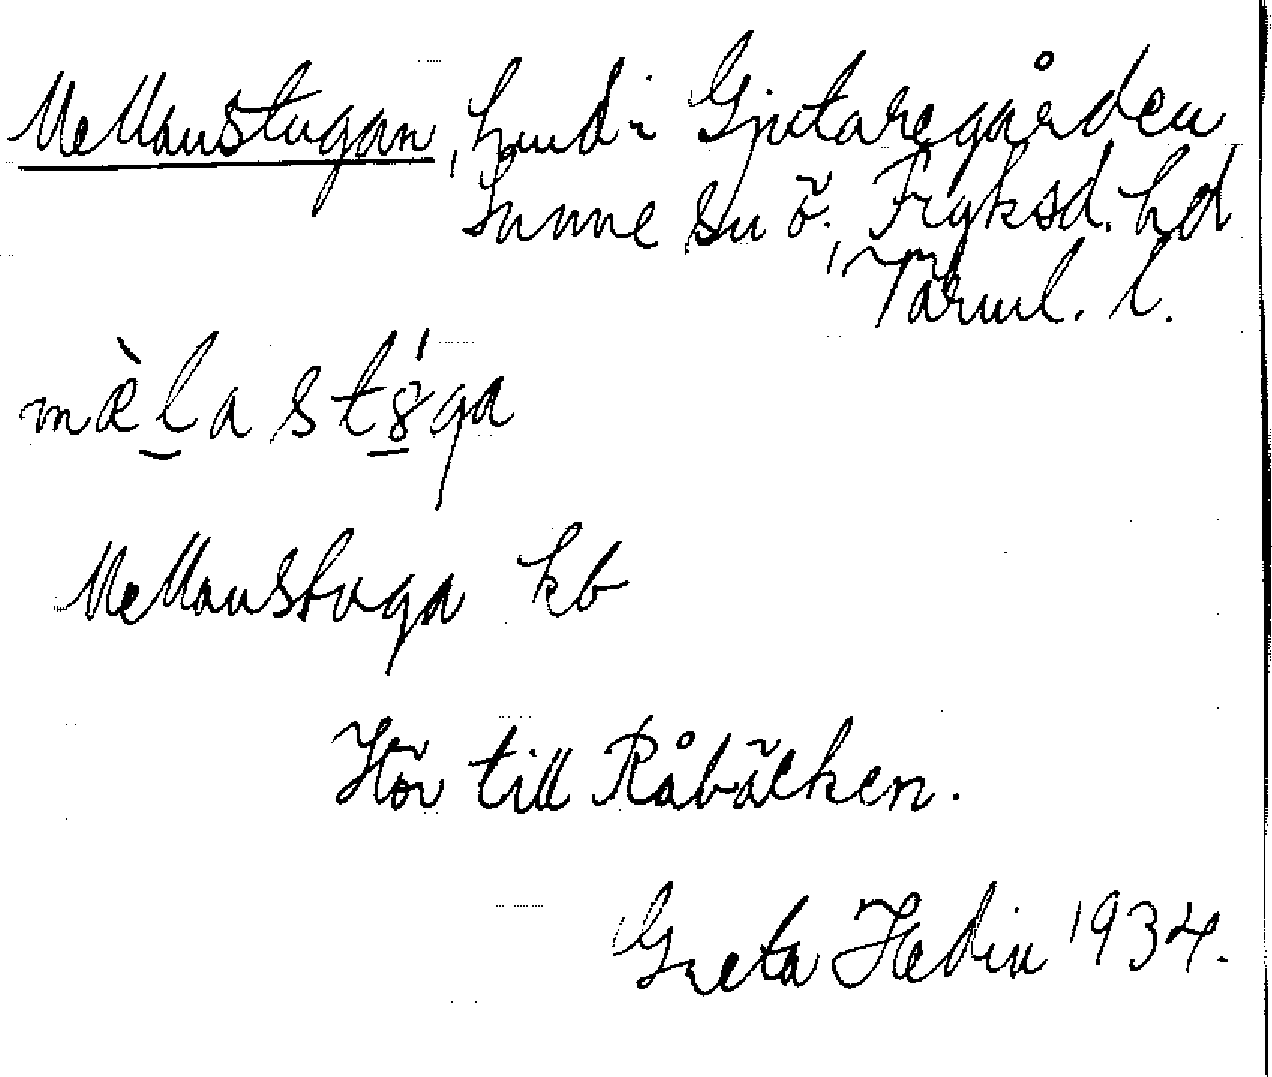 Mellanstugan, hmd i Gjutaregården
Sunne sn ö., Fryksd. hd
Värml. l.
mèlastga
Mellanstuga kb
Hör till Råbäcken.
Greta Hedin 1934.